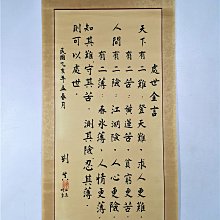 處世金言
天下有二難：登天難，求人更難
有二苦：黃連苦，貧窮更苦
人間有二險：江湖險，人心更險
有二薄：春冰薄，人情更薄
知其難守其苦，測其險忍其薄
則可以處世。
民國乙亥年孟春月
劉